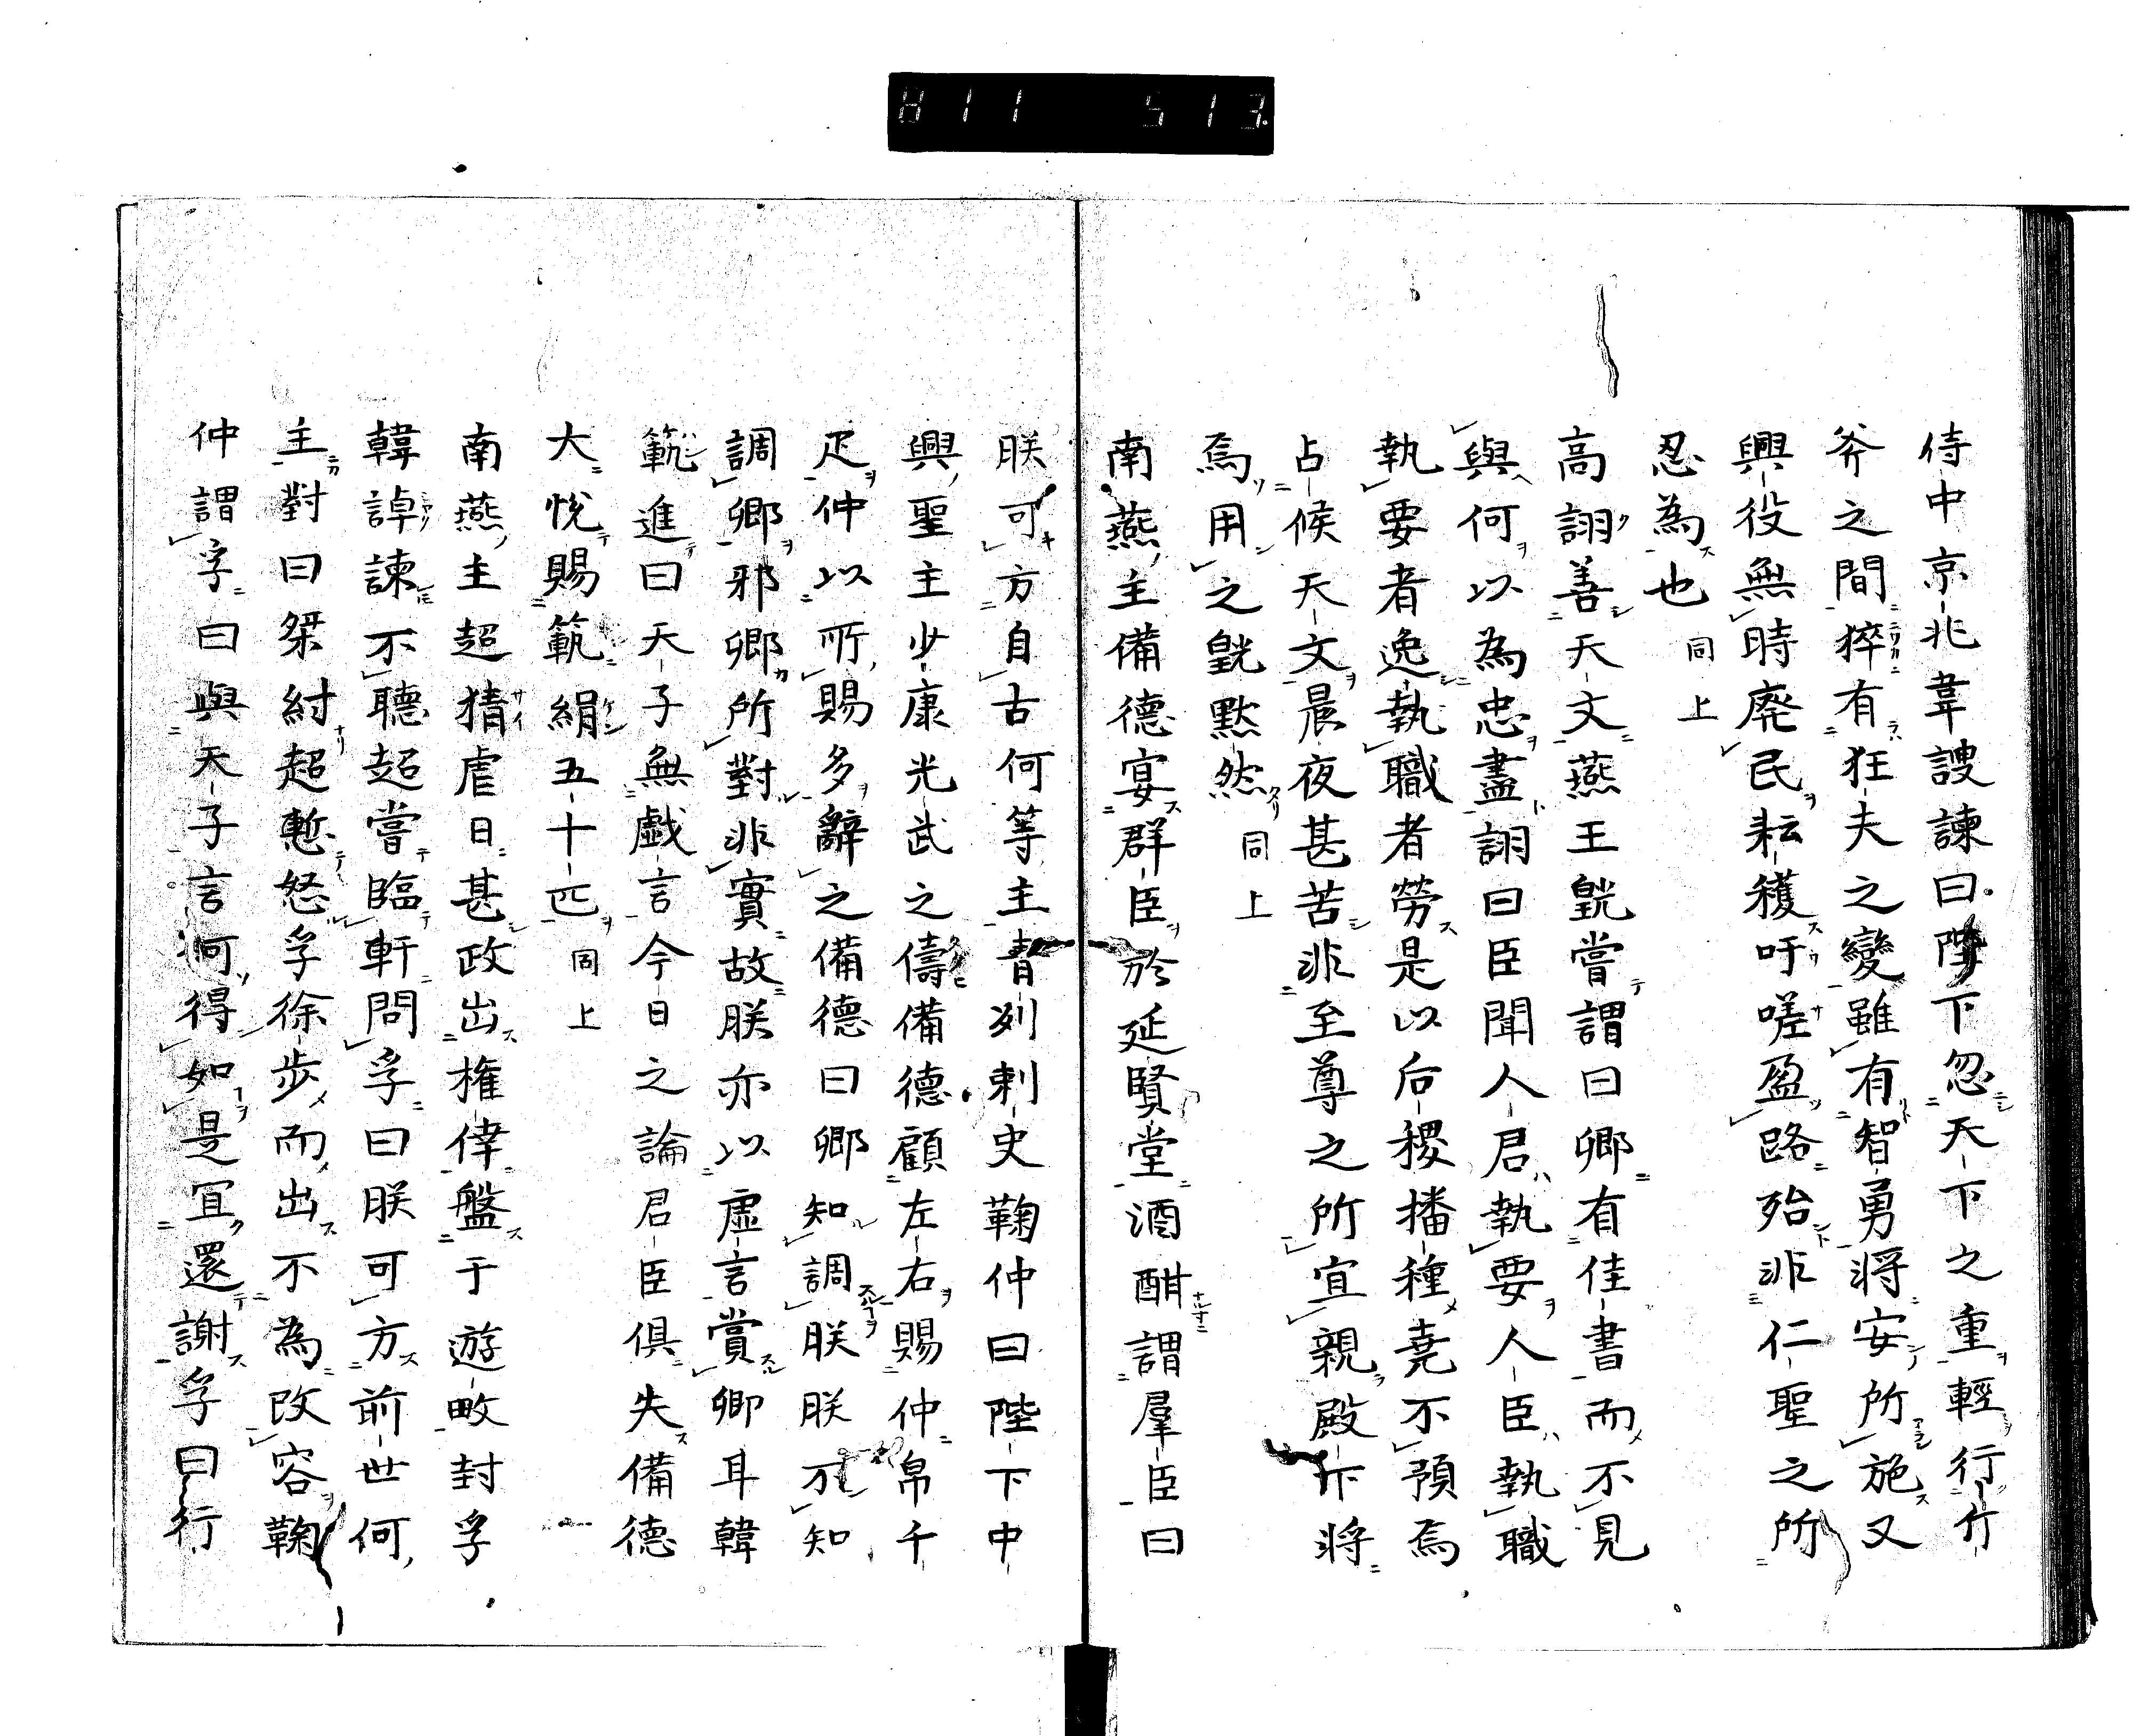 811 513.
侍中京兆韋謏諫曰陛下忽天下之重輕行斤
斧之間猝有狂夫之變雖有智勇將安所施又
興役無時廃民耘穫吁嗟盈路殆非仁聖之所
忍為也 同上
高詡善天文燕王皝嘗謂曰卿有佳書而不見
與何以為忠盡詡曰臣聞人君執要人臣執職
執要者逸執職者勞是以后稷播種堯不預焉
占候天文晨夜甚苦非至尊之所宜親殿下將
焉用之皝黙然 同上
南燕主備德宴群臣於延賢堂酒酣謂羣臣曰
朕可方自古何等主青州刺史鞠仲曰陛下中
興聖主少康光武之儔備德顧左右賜仲帛千
疋仲以所賜多辭之備德曰卿知調朕朕不知
調卿邪卿所對非實故朕亦以虛言賞卿耳韓
範進曰天子無戯言今日之論君臣俱失備德
大悅賜範絹五十匹 同上
南燕主超猜虐日甚政出權倖盤于遊畋封孚
韓𧨳諫不聽超嘗臨軒問孚曰朕可方前世何
主對曰桀紂超慙怒孚徐步而出不為改容鞠
仲謂孚曰與天子言何得如是冝還謝孚曰行